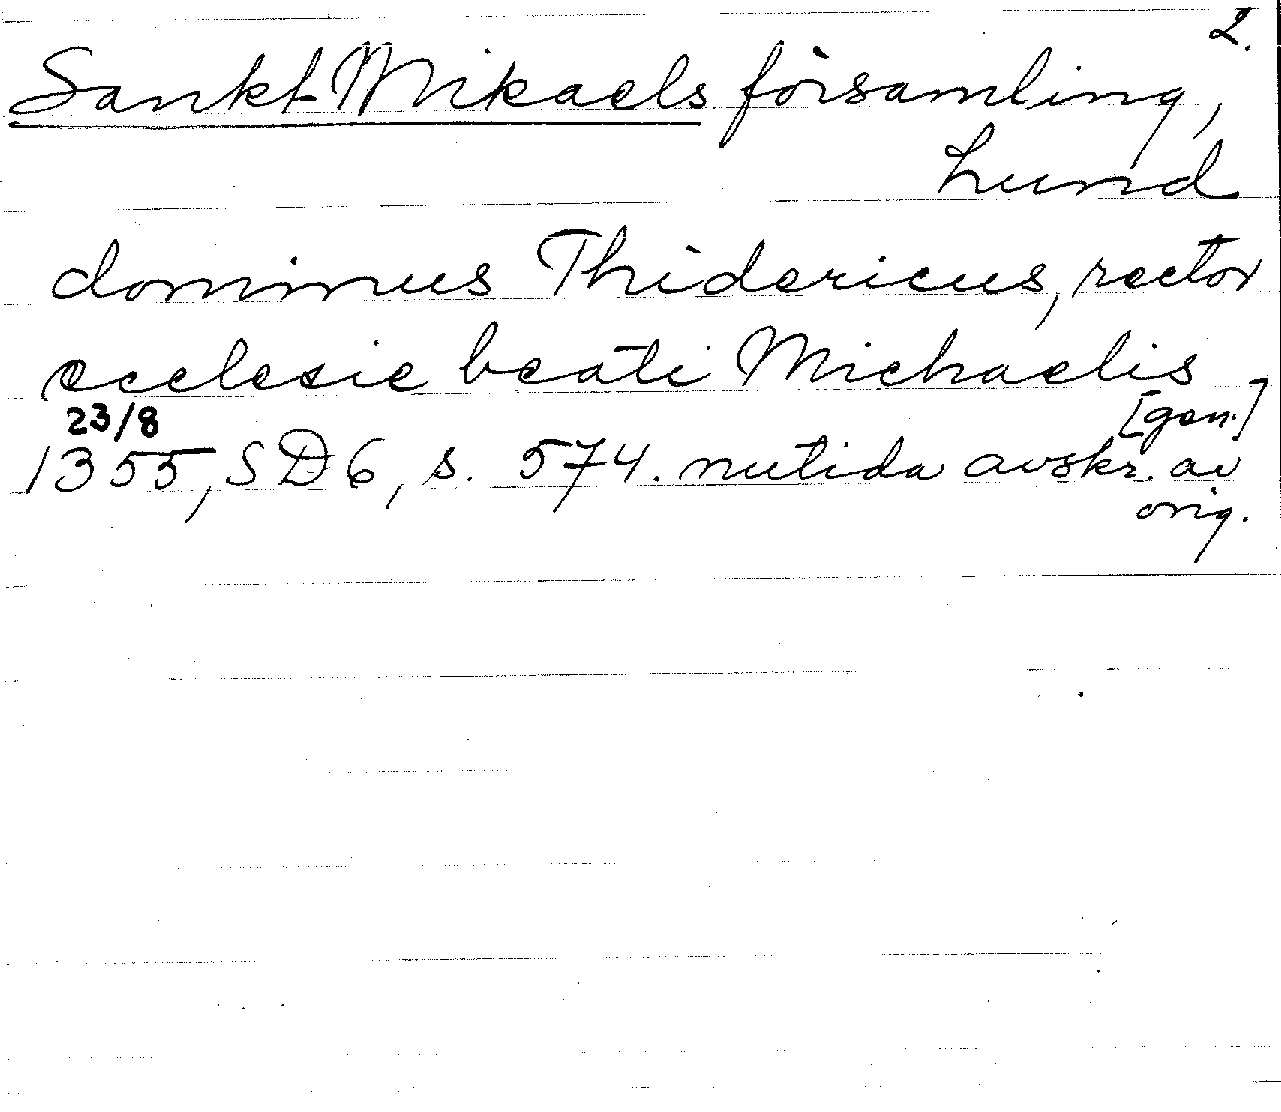 2.
Sankt Mikaels församling,
Lund
dominus Thidericus, rector
ecclesie beati Michaelis
[gen.]
23/8
1355, SD 6, s. 574. nutida avskr. av
orig.